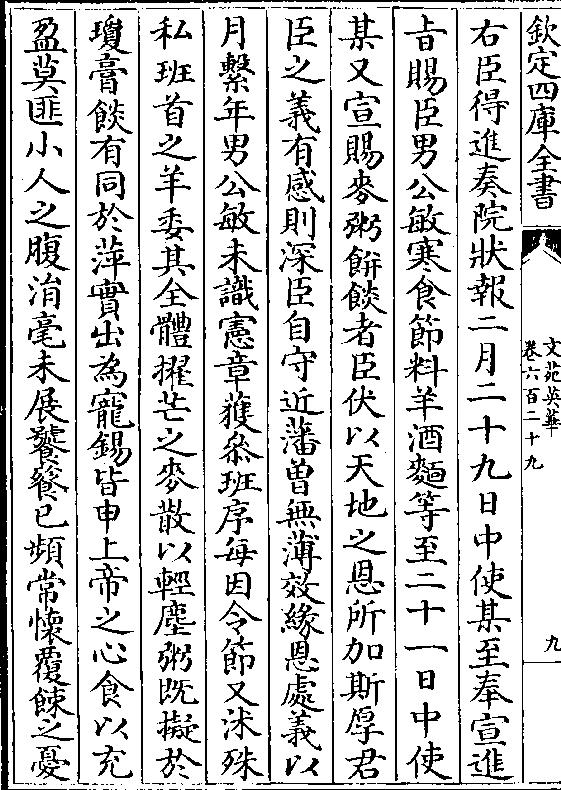 欽定四庫全書
文苑英華
卷六百二十九
九
右臣得進奏院狀報二月二十九日中使某至奉宣進
㫖賜臣男公敏寒食節料羊酒麵等至二十一日中使
某又宣賜麥粥餅餤者臣伏以天地之恩所加斯厚君
臣之義有感則深臣自守近藩曽無薄效緣恩處義以
月繫年男公敏未識憲章獲叅班序每因令節又沐殊
私班首之羊委其全體擢芒之麥散以輕塵粥既擬於
瓊膏餤有同於萍實出為寵錫皆申上帝之心食以充
盈莫匪小人之腹涓毫未展饕餮已頻常懷覆餗之憂